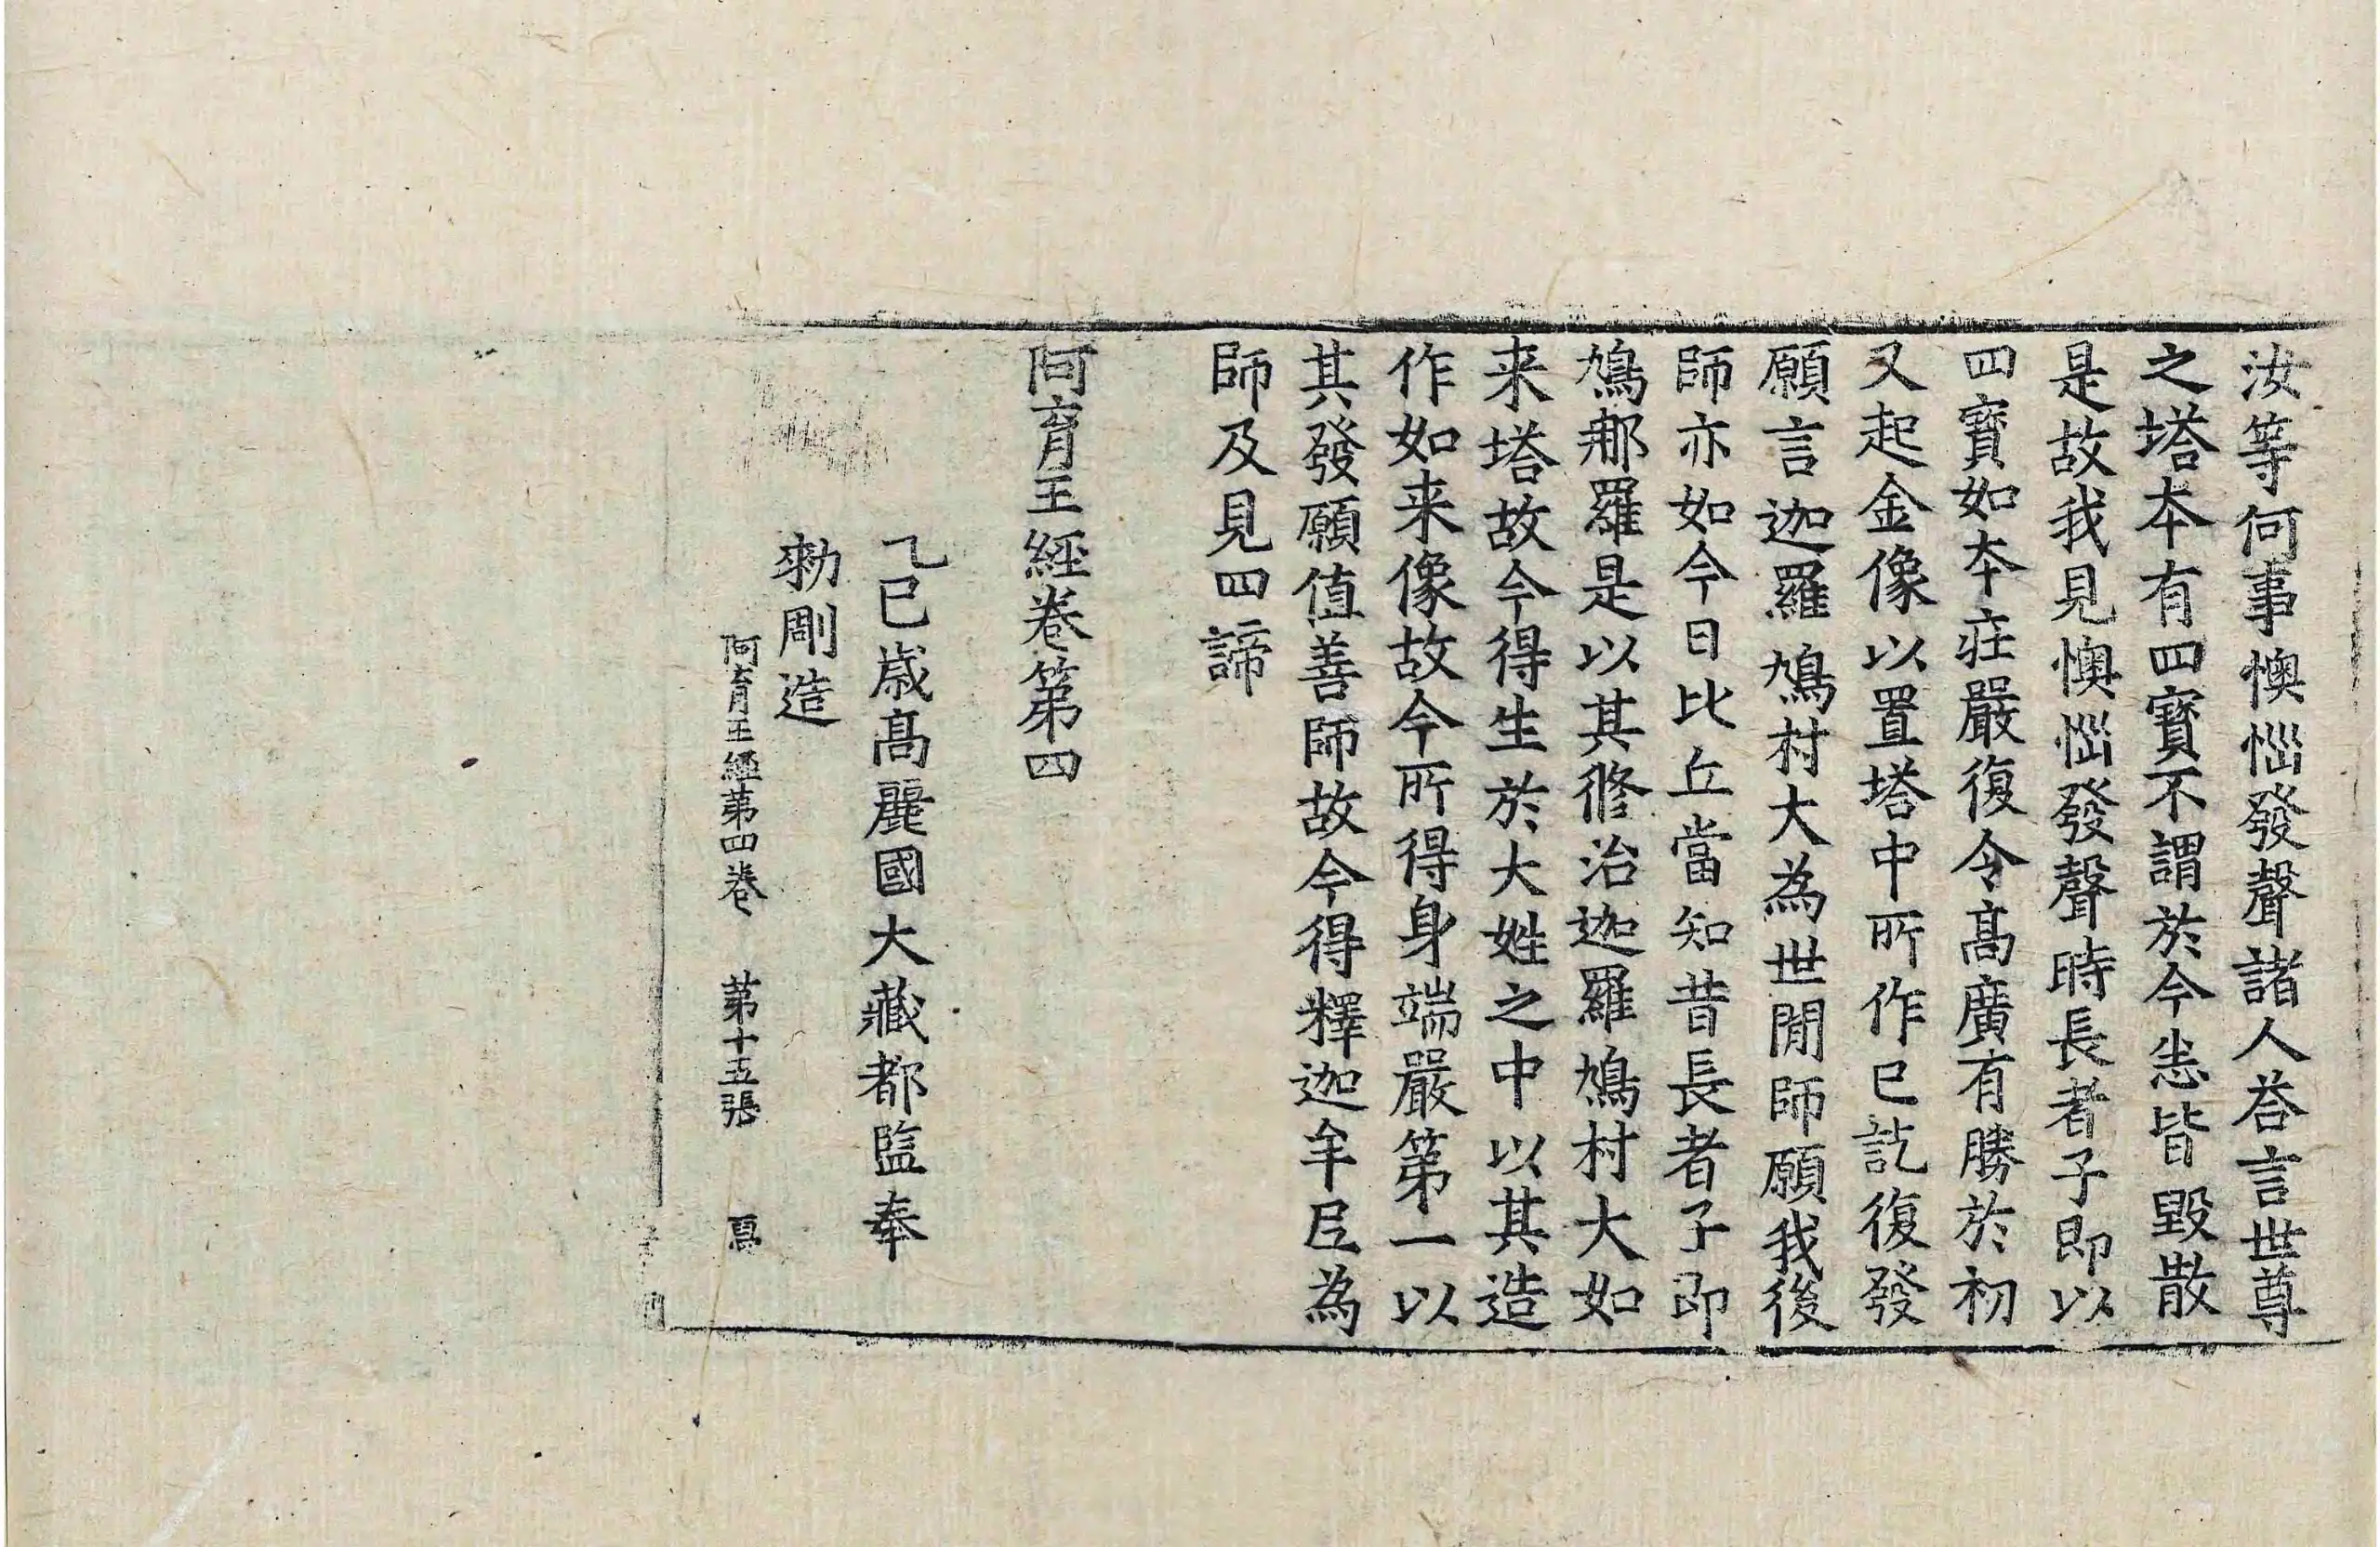 汝等何事懊惱發聲諸人荅言世尊
之塔夲有四寶不謂於今恙皆毀散
是故我見懊惱發聲時長者子即以
四寶如夲莊嚴復令髙廣有勝於初
又起金像以置塔中所作已訖復發
願言迦羅鳩村大為世閒師願我後
師亦如今日比丘當知昔長者子即
鳩那羅是以其脩治迦羅鳩村大如
来塔故今得生於大姓之中以其造
作如来像故今所得身端嚴第一以
其發願值善師故今得釋迦牟尼為
師及見四諦
阿育王經卷第四
乙巳歳髙麗國大藏都監奉
勑彫造
阿育王經第四卷　第十五張